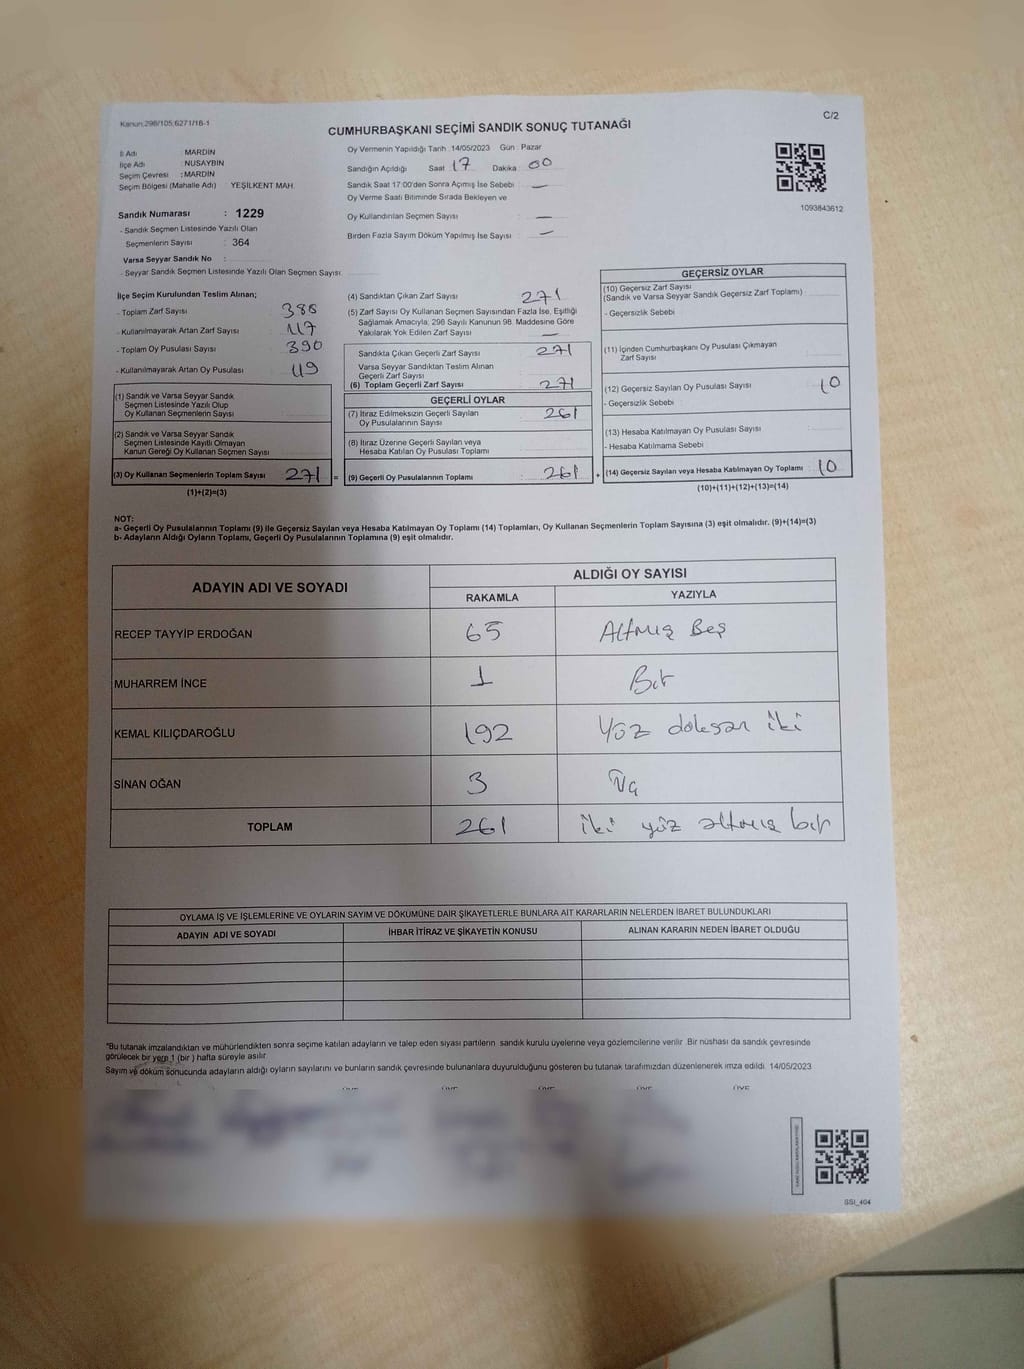 Kanun:298/105,6271/18-1
C/2
CUMHURBAŞKANI SEÇİMİ SANDIK SONUÇ TUTANAĞI
İl Adı MARDİN
İlçe Adı NUSAYBİN
Seçim Çevresi : MARDİN
Seçim Bölgesi (Mahalle Adı) YEŞİLKENT MAH.
Oy Vermenin Yapıldığı Tarih :14/05/2023 Gün : Pazar
Sandığın Açıldığı Saat : 17 Dakika : 00
Sandık Saat 17.00'den Sonra Açımış İse Sebebi : —
Oy Verme Saati Bitiminde Sırada Bekleyen ve
Oy Kullandırılan Seçmen Sayısı : —
Birden Fazla Sayım Döküm Yapılmış İse Sayısı : —
1093843612
Sandık Numarası : 1229
- Sandık Seçmen Listesinde Yazılı Olan
Seçmenlerin Sayısı : 364
Varsa Seyyar Sandık No :
- Seyyar Sandık Seçmen Listesinde Yazılı Olan Seçmen Sayısı:
İlçe Seçim Kurulundan Teslim Alınan;
- Toplam Zarf Sayısı 388
- Kullanılmayarak Artan Zarf Sayısı : 117
- Toplam Oy Pusulası Sayısı 390
- Kullanılmayarak Artan Oy Pusulası : 119
(1) Sandık ve Varsa Seyyar Sandık
Seçmen Listesinde Yazılı Olup
Oy Kullanan Seçmenlerin Sayısı
(2) Sandık ve Varsa Seyyar Sandık
Seçmen Listesinde Kayıtlı Olmayan
Kanun Gereği Oy Kullanan Seçmen Sayısı
(3) Oy Kullanan Seçmenlerin Toplam Sayısı 271 =
(1)+(2)=(3)
(4) Sandıktan Çıkan Zarf Sayısı 271
(5) Zarf Sayısı Oy Kullanan Seçmen Sayısından Fazla İse, Eşitliği
Sağlamak Amacıyla, 298 Sayılı Kanunun 98. Maddesine Göre
Yakılarak Yok Edilen Zarf Sayısı —
Sandıkta Çıkan Geçerli Zarf Sayısı 271
Varsa Seyyar Sandıktan Teslim Alınan
Geçerli Zarf Sayısı
(6) Toplam Geçerli Zarf Sayısı 271
GEÇERLİ OYLAR
(7) İtiraz Edilmeksizin Geçerli Sayılan 261
Oy Pusulalarının Sayısı
(8) İtiraz Üzerine Geçerli Sayılan veya
Hesaba Katılan Oy Pusulası Toplamı
(9) Geçerli Oy Pusulalarının Toplamı 261 +
GEÇERSİZ OYLAR
(10) Geçersiz Zarf Sayısı
(Sandık ve Varsa Seyyar Sandık Geçersiz Zarf Toplamı) :
- Geçersizlik Sebebi :
(11) İçinden Cumhurbaşkanı Oy Pusulası Çıkmayan
Zarf Sayısı
(12) Geçersiz Sayılan Oy Pusulası Sayısı : 10
- Geçersizlik Sebebi :
(13) Hesaba Katılmayan Oy Pusulası Sayısı :
- Hesaba Katılmama Sebebi :
(14) Geçersiz Sayılan veya Hesaba Katılmayan Oy Toplamı 10
(10)+(11)+(12)+(13)=(14)
NOT:
a- Geçerli Oy Pusulalarının Toplamı (9) ile Geçersiz Sayılan veya Hesaba Katılmayan Oy Toplamı (14) Toplamları, Oy Kullanan Seçmenlerin Toplam Sayısına (3) eşit olmalıdır. (9)+(14)=(3)
b- Adayların Aldığı Oyların Toplamı, Geçerli Oy Pusulalarının Toplamına (9) eşit olmalıdır.
ADAYIN ADI VE SOYADI ALDIĞI OY SAYISI
RAKAMLA YAZIYLA
RECEP TAYYİP ERDOĞAN 65 Altmış Beş
MUHARREM İNCE 1 Bir
KEMAL KILIÇDAROĞLU 192 Yüz doksan iki
SİNAN OĞAN 3 Üç
TOPLAM 261 iki yüz altmış bir
OYLAMA İŞ VE İŞLEMLERİNE VE OYLARIN SAYIM VE DÖKÜMÜNE DAİR ŞİKAYETLERLE BUNLARA AİT KARARLARIN NELERDEN İBARET BULUNDUKLARI
ADAYIN ADI VE SOYADI İHBAR İTİRAZ VE ŞİKAYETİN KONUSU ALINAN KARARIN NEDEN İBARET OLDUĞU
*Bu tutanak imzalandıktan ve mühürlendikten sonra seçime katılan adayların ve talep eden siyasi partilerin sandık kurulu üyelerine veya gözlemcilerine verilir. Bir nüshası da sandık çevresinde
görülecek bir yere 1 (bir ) hafta süreyle asılır.
Sayım ve döküm sonucunda adayların aldığı oyların sayılarını ve bunların sandık çevresinde bulunanlara duyurulduğunu gösteren bu tutanak tarafımızdan düzenlenerek imza edildi. 14/05/2023
ÜYE ÜYE ÜYE ÜYE ÜYE
SSI_404